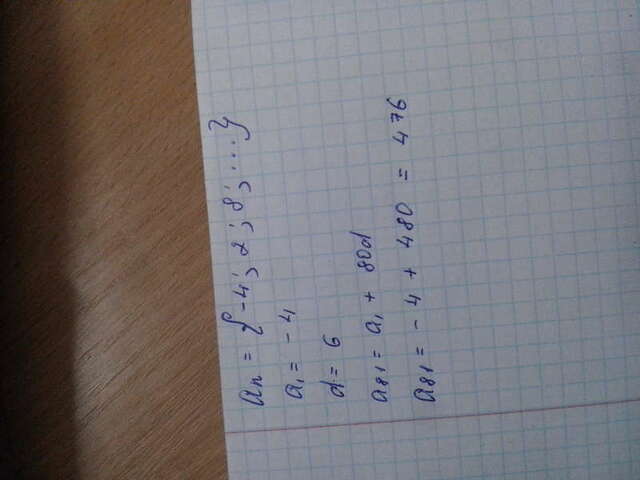 aₙ = {-4; 2; 8; ...}
a₁ = -4
d = 6
a₈₁ = a₁ + 80d
a₈₁ = -4 + 480 = 476